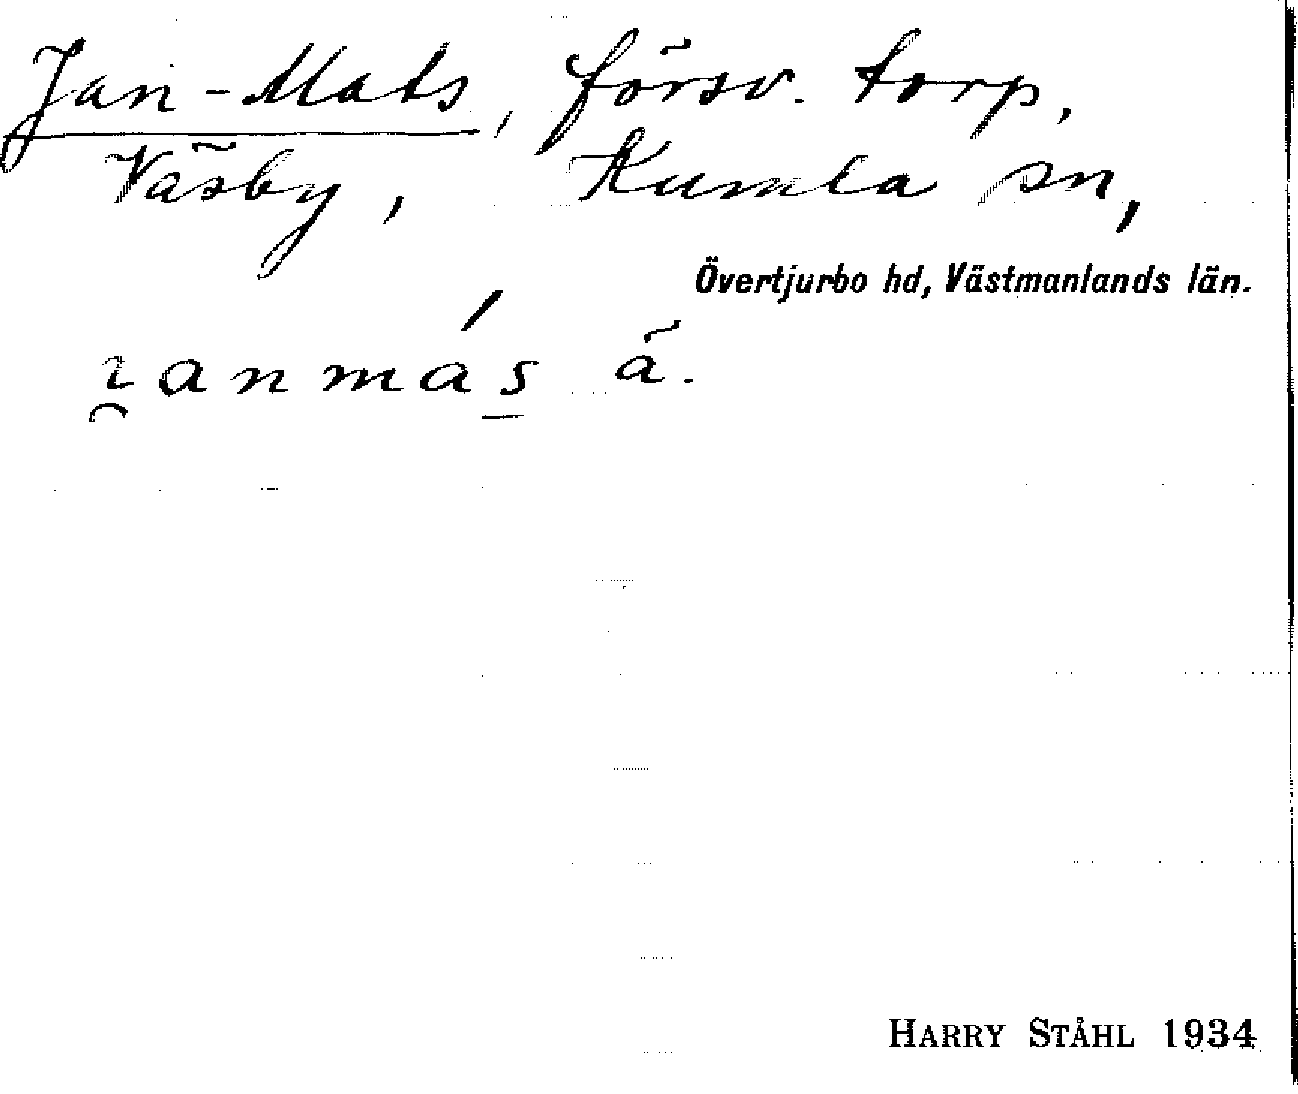 Jan-Mats, försv. torp,
Väsby, Kumla sn,
Övertjurbo hd, Västmanlands län.
ɪ̯anmás ä.
HARRY STÅHL 1934